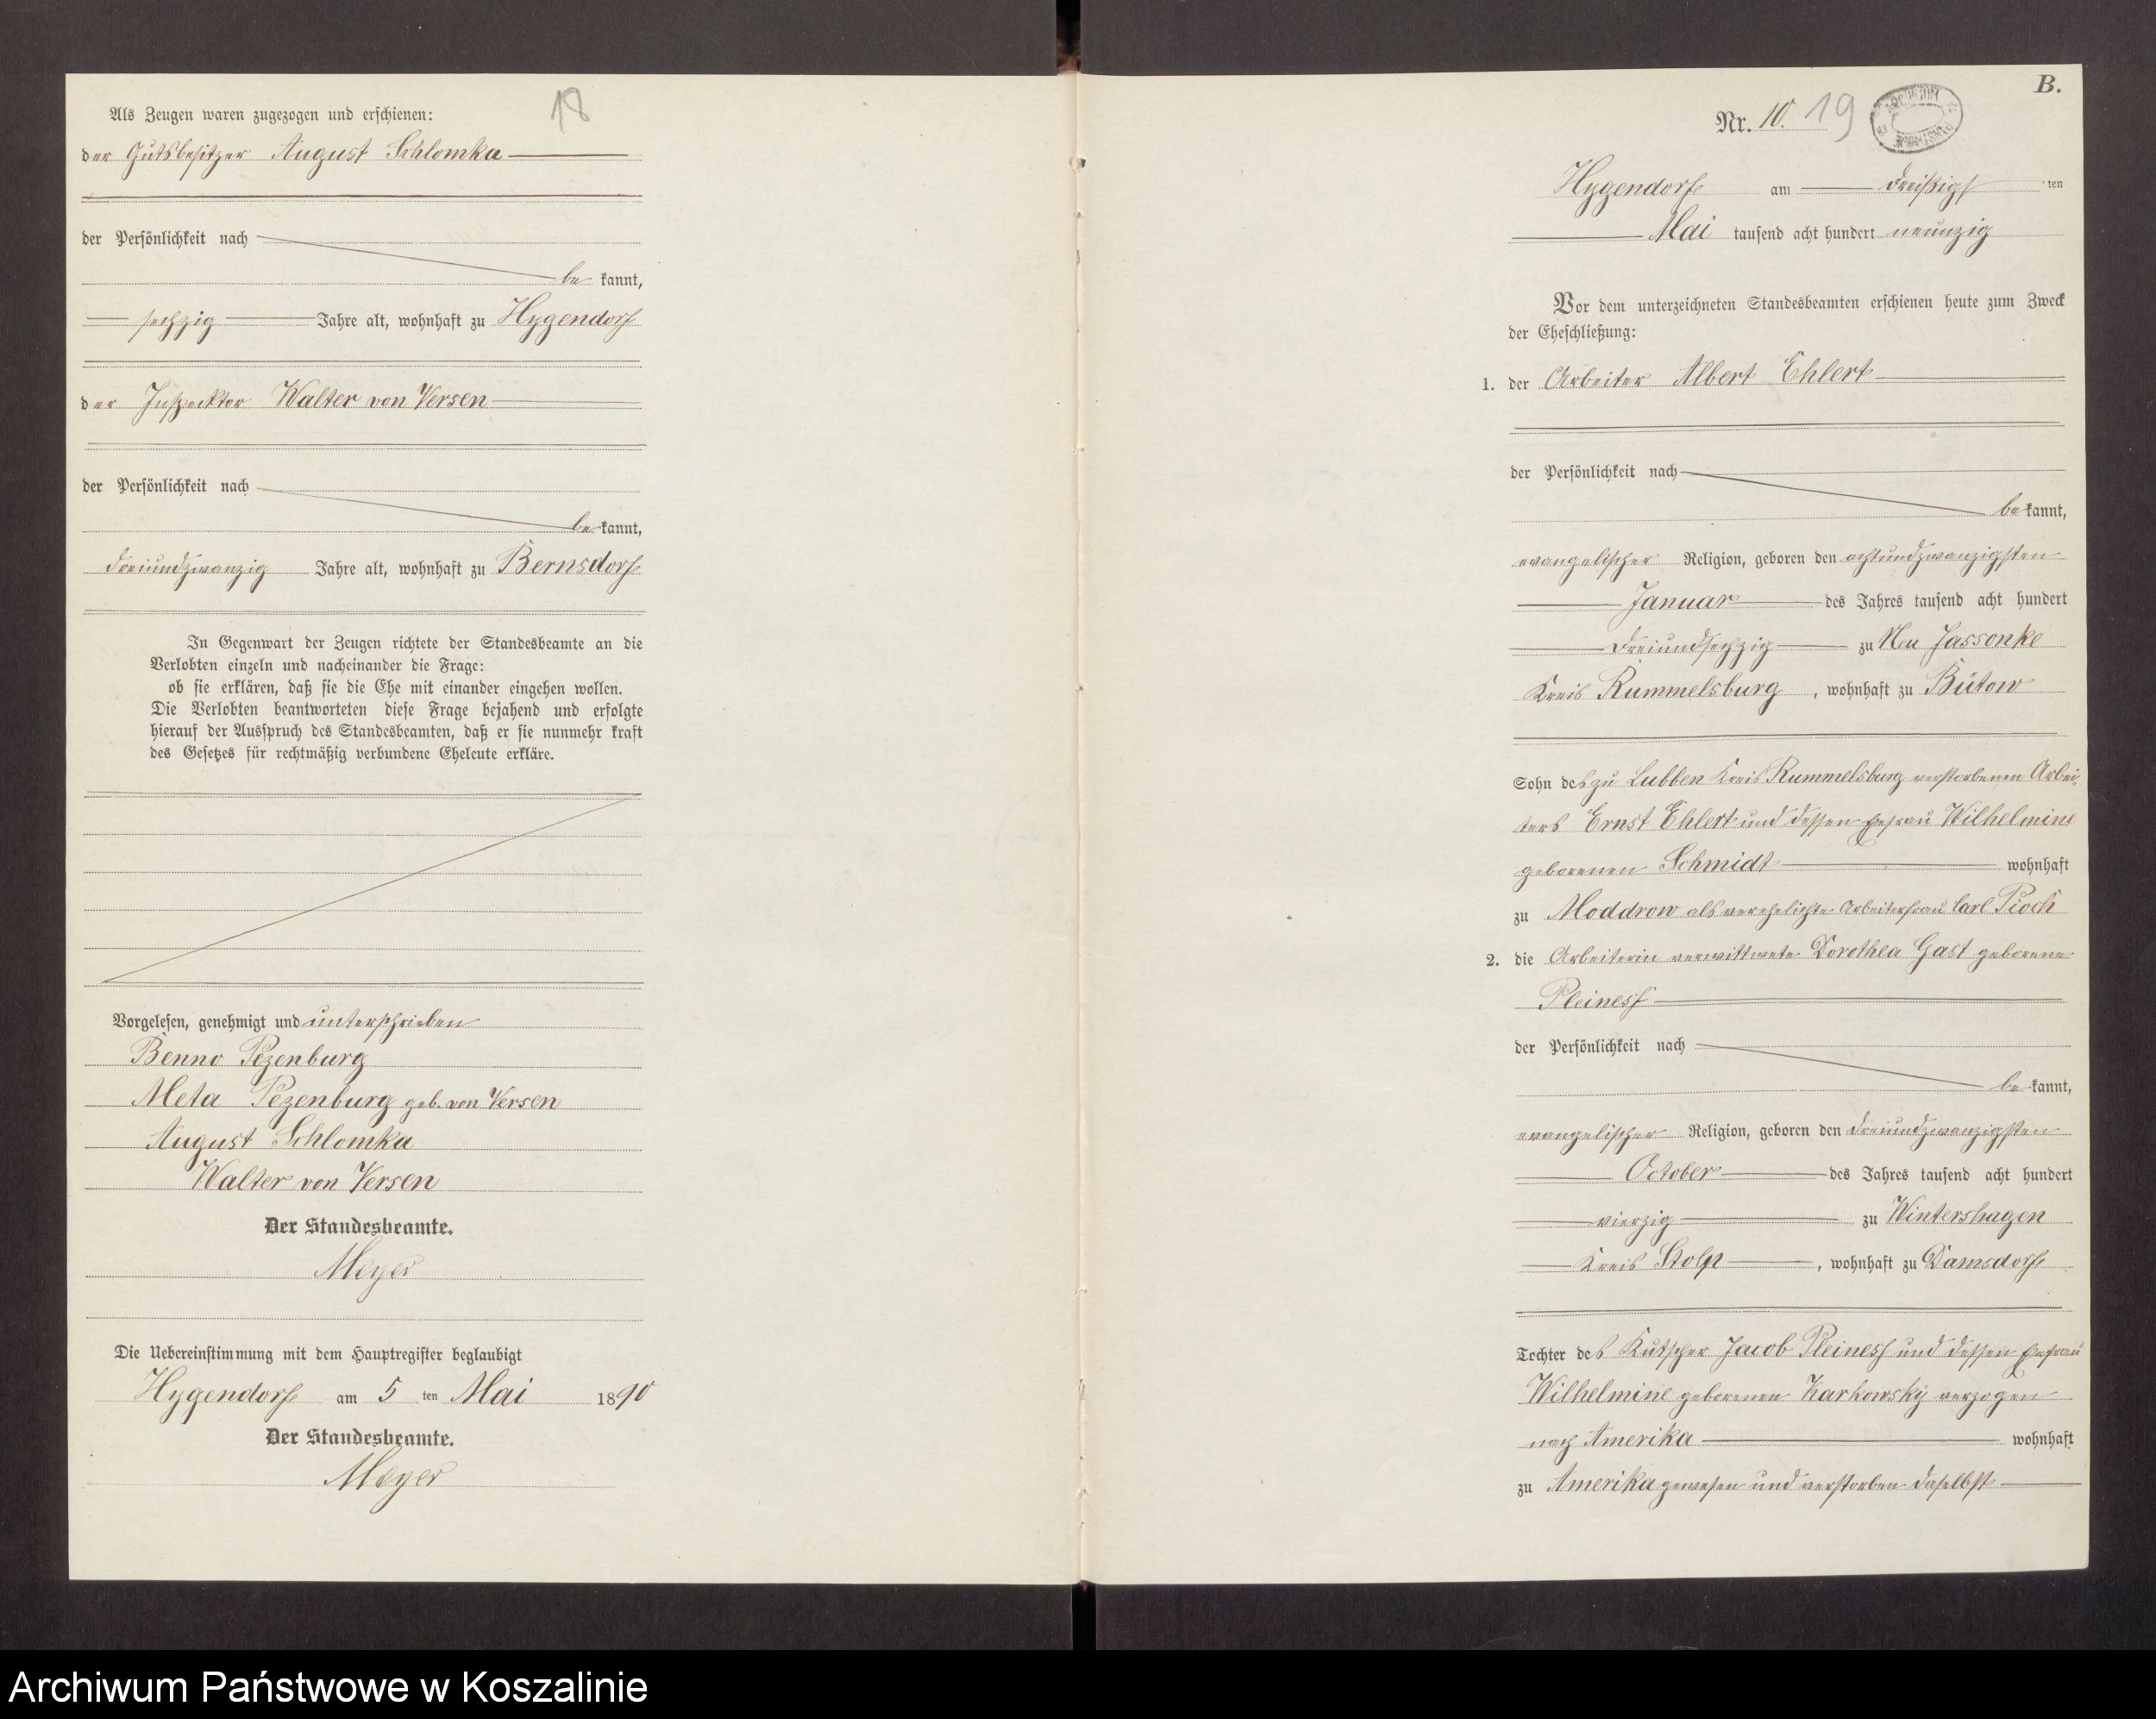 Als Zeugen waren zugezogen und erschienen:
18
der Gutsbesitzer August Schlomka
der Persönlichkeit nach
be kannt,
sechzig Jahre alt, wohnhaft zu Hygendorf
der Inspecktor Walter von Versen
der Persönlichkeit nach
be kannt,
dreiundzwanzig Jahre alt, wohnhaft zu Bernsdorf
In Gegenwart der Zeugen richtete der Standesbeamte an die
Verlobten einzeln und nacheinander die Frage:
ob sie erklären, daß sie die Ehe mit einander eingehen wollen.
Die Verlobten beantworteten diese Frage bejahend und erfolgte
hierauf der Ausspruch des Standesbeamten, daß er sie nunmehr kraft
des Gesetzes für rechtmäßig verbundene Eheleute erkläre.
Vorgelesen, genehmigt und unterschrieben
Benno Pezenburg
Meta Pezenburg geb. von Versen
August Schlomka
Walter von Versen
Der Standesbeamte.
Meyer
Die Uebereinstimmung mit dem Hauptregister beglaubigt
Hygendorf am 5 ten Mai 1890
Der Standesbeamte.
Meyer
B.
Nr. 10. 19
Hygendorf am dreißigs ten
Mai tausend acht hundert neunzig
Vor dem unterzeichneten Standesbeamten erschienen heute zum Zweck
der Eheschließung:
1. der Arbeiter Albert Ehlert
der Persönlichkeit nach
be kannt,
evangelischer Religion, geboren den achtundzwanzigsten
Januar des Jahres tausend acht hundert
dreiundsechzig zu Neu Jassonke
Kreis Rummelsburg, wohnhaft zu Bütow
Sohn des zu Lubben Kreis Rummelsburg verstorbenen Arbei-
ters Ernst Ehlert und dessen Ehefrau Wilhelmine
geborenen Schmidt wohnhaft
zu Moddrow als verehelichte Arbeiterfrau Carl Pioch
2. die Arbeiterin verwittwete Dorothea Gast geborene
Pleiness
der Persönlichkeit nach
be kannt,
evangelischer Religion, geboren den dreiundzwanzigsten
October des Jahres tausend acht hundert
vierzig zu Wintershagen
Kreis Stolp, wohnhaft zu Damsdorf
Tochter des Kutscher Jacob Pleiness und dessen Ehefrau
Wilhelmine geborenen Karkowsky verzogen
nach Amerika wohnhaft
zu Amerika gewesen und verstorben daselbst
Archiwum Państwowe w Koszalinie